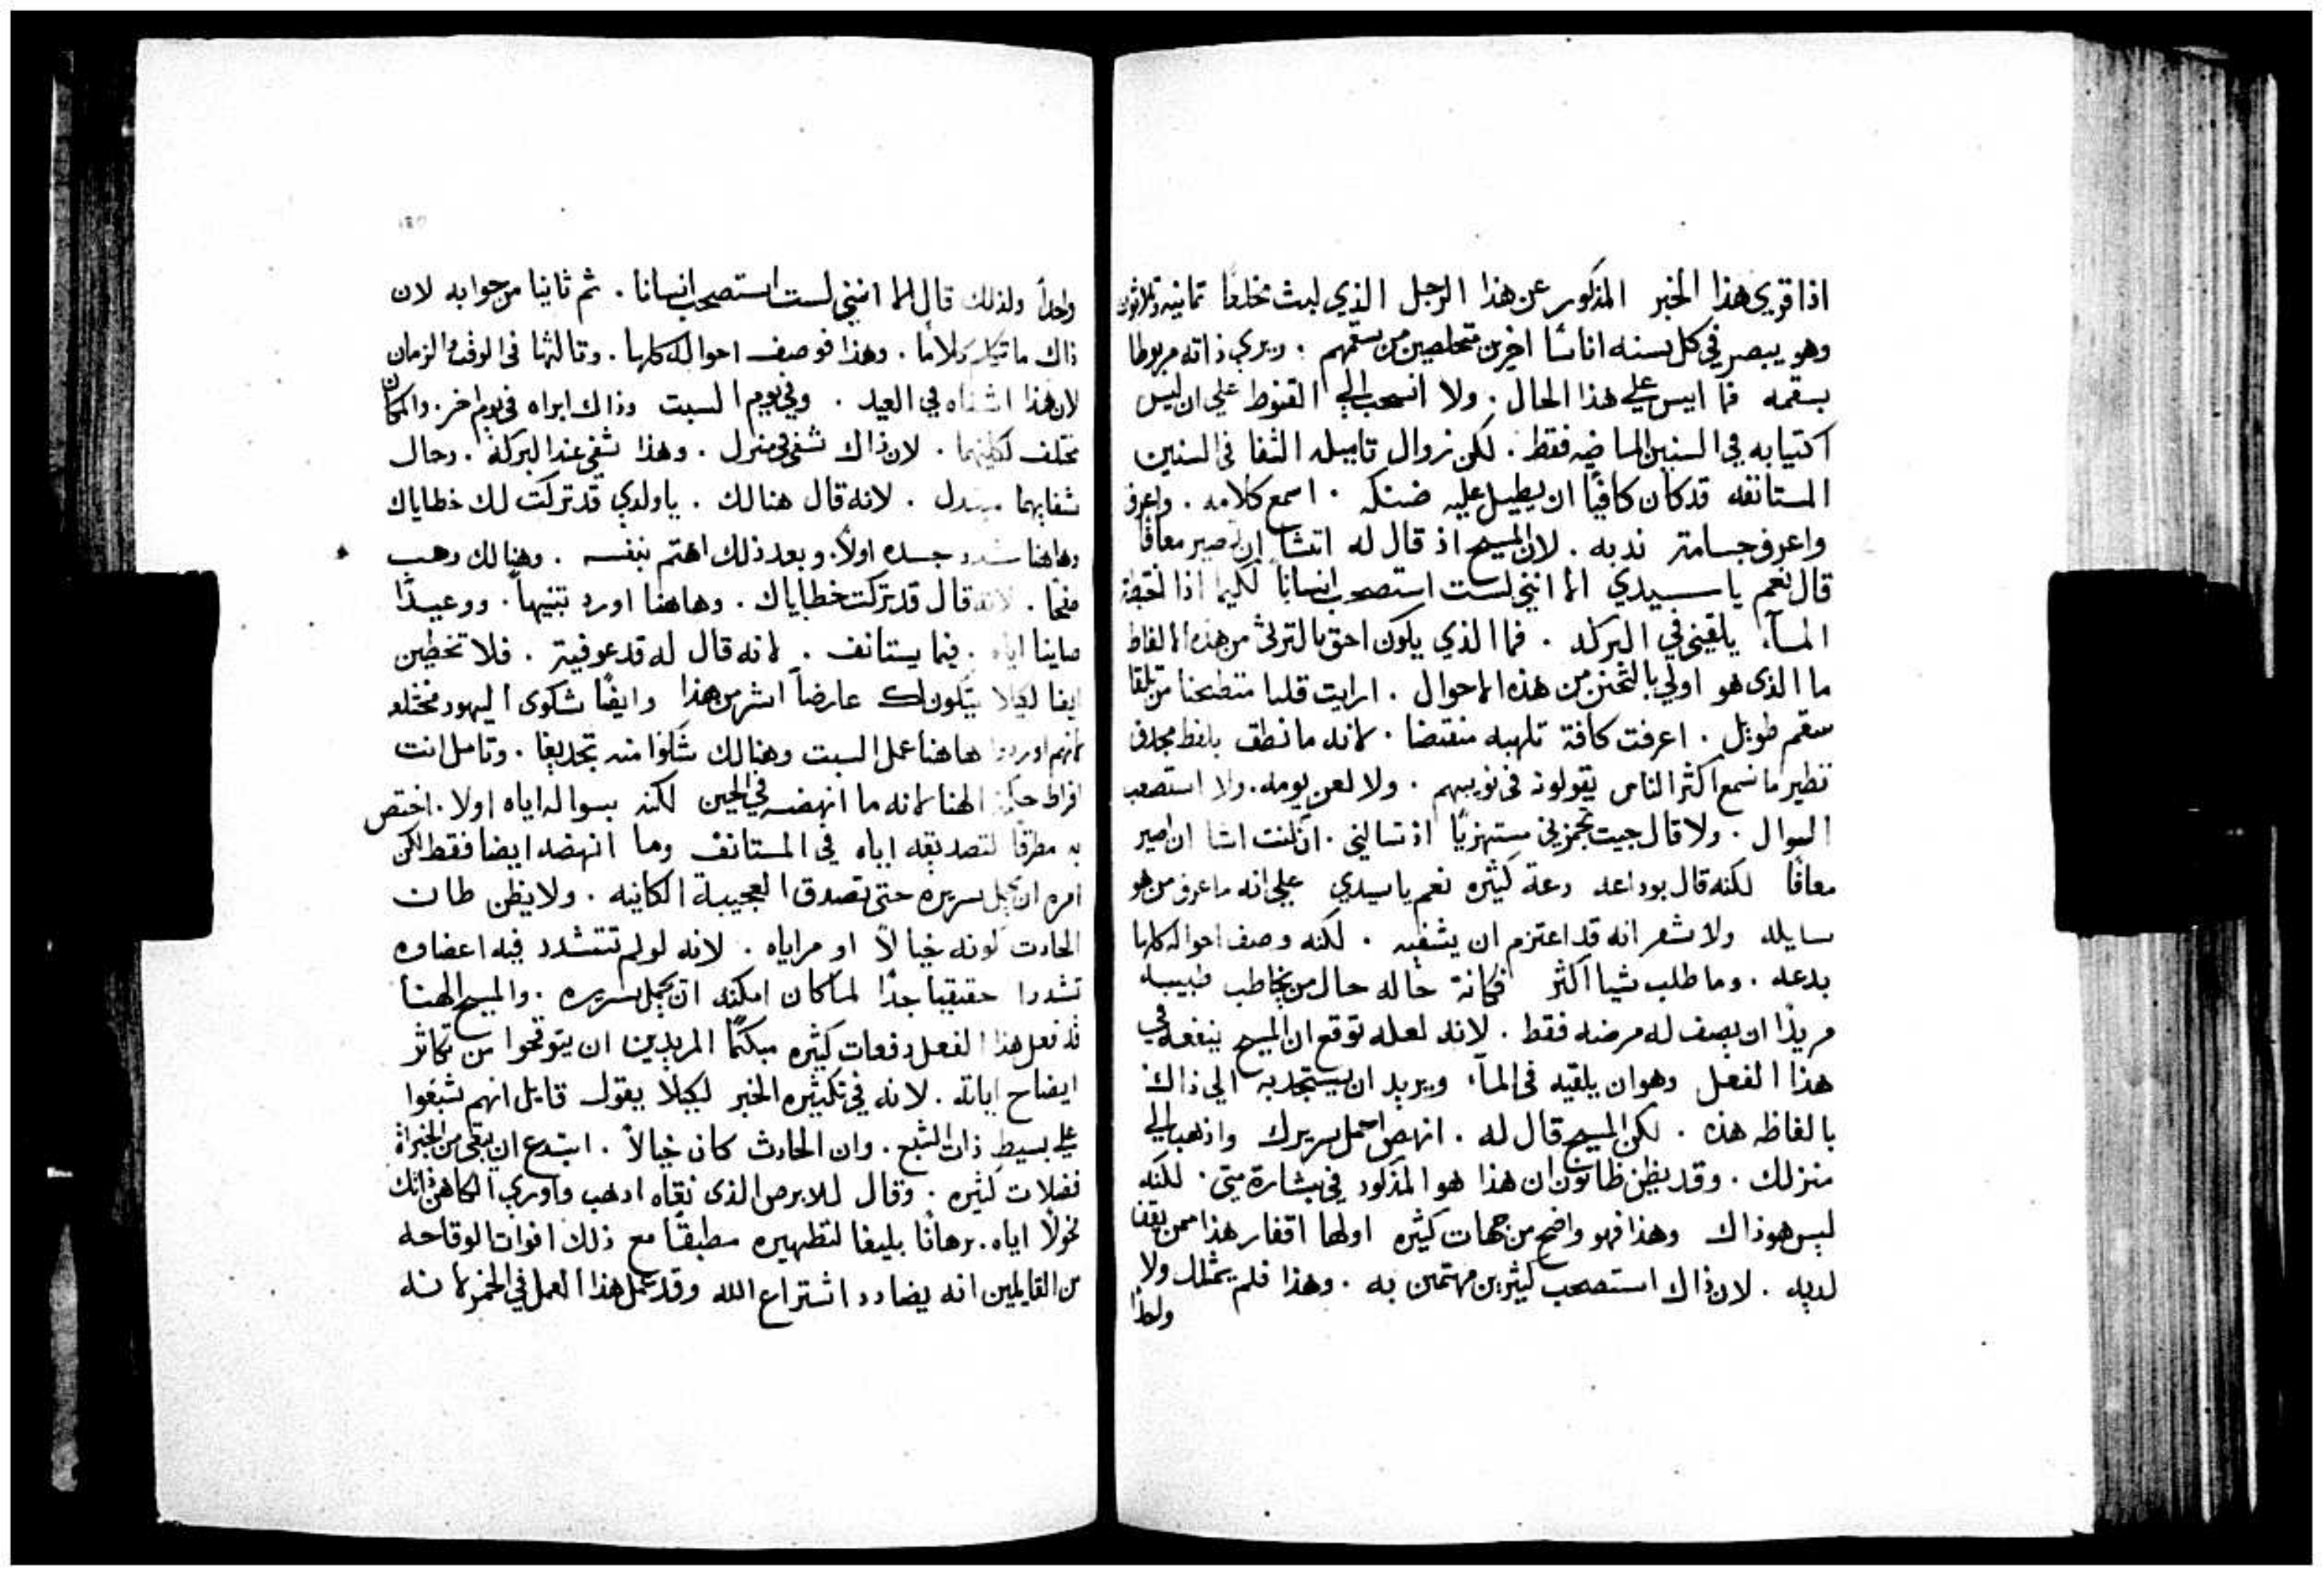 اذا قوبى هذا الخبر المذكور عن هذا الرجل الذي لبث مخلعا ثمانيه وثلاثون
وهو يبصر في كل سنه اناسًا اخرين متخلصين من سقمهم . ويري ذاته مربوطا
بسقمه فما ايس علي هذا الحال . ولا انسحب الي القنوط علي ان ليس
اكتيابه في السنين الماضيه فقط . لكن زوال تاميله الشفا في السنين
المستانفه قد كان كافيًا ان يطيل عليه ضنكه . اسمع كلامه . واعرف
واعرف جسامة ندبه . لان المسيح اذ قال له اتشا ان تصير معافا
قال نعم يا سيدي الا انني لست استصحب انسانا لكيما اذا
المآء يلقيني في البركه . فما الذي يكون احق بالترثي من هذه الالفاظ
ما الذى هو اولي بالتحنن من هذه الاحوال . ارايت قلبا منطحنا من تلقا
سقم طويل . اعرفت كافة تلهبه منقبضا . لانه ما نطق بلفظ مجدف
نظير ما نسمع اكثر الناس يقولونه في نوبهم . ولا لعن يومه . ولا استصعب
السوال . ولا قال جيت مستهزيًا اذ تسالني . ان كنت اشا ان اصير
معافًا لكنه قال بوداعه ودعة كثيره نعم يا سيدي علي انه ما عرف من هو
سايله ولا شعر انه قد اعتزم ان يشفيه . لكنه وصف احواله كلها
بدعه . وما طلب شيا اكثر فكانة حاله حال من يخاطب طبيبه
مريدًا ان يصف له مرضه فقط . لانه لعله توقع ان المسيح ينفعه في
هذا الفعل وهو ان يلقيه في المآء ويريد ان يستجذبه الي ذاك
بالفاظه هذه . لكن المسيح قال له . انهض احمل سريرك واذهب الي
منزلك . وقد يظن ظانون ان هذا هو المذكور في بشارة متي . لكنه
ليس هو ذاك وهذا فهو واضح من جهات كثيره اولها اقفار هذا ممن يقف
لديه . لان ذاك استصحب كثيرين مهتمين به . وهذا فلم يمتلك ولا
واحدًا
واحدًا ولذلك قال الا انني لست استصحب انسانا . ثم ثانيا من جوابه لان
ذاك ما تكلم كلاما . وهذا فوصف احواله كلها . وثالثها في الوقت والزمان
لان هذا اشفاه في العيد . وفي يوم السبت وذاك ابراه في يوم اخر . والمكان
مختلف لكليهما . لان ذاك شفي في منزل . وهذا شفي عند البركة . وحال
شفايهما متبدل . لانه قال هنالك . يا ولدي قد تركت لك خطاياك
وهاهنا شدد جسده اولاً . وبعد ذلك اهتم بنفسه . وهنالك وهب
صفحا . لانه قال قد تركت خطاياك . وهاهنا اورد تنبيهاً . ووعيدًا
صاينا اياه . فيما يستانف . لانه قال له قد عوفيت . فلا تخطين
ايضا لكيلا يتكون لك عارضاً اشر من هذا وايضًا شكوى اليهود مختلفه
لانهم اوردوا هاهنا عمل السبت وهنالك شكوا منه تجديفا . وتامل انت
افراط حكمة الهنا لانه ما انهضه في الحين لكنه بسواله اياه اولا . اختص
به مطرقًا لتصديقه اياه في المستانف وما انهضه ايضا فقط لكن
امره ان يحمل سريره حتى تصدق العجيبة الكاينه . ولا يظن ظان
الحادث كونه خيالاً او مراياه . لانه لو لم تتشدد فيه اعضاوه
تشددا حقيقيا جدًا لما كان امكنه ان يحمل سريره . والمسيح الهنا
قد فعل هذا الفعل دفعات كثيره مبكتًا المريدين ان يتوقحوا من تكاثر
ايضاح اياته . لانه في تكثيره الخبز لكيلا يقول قايل انهم شبعوا
علي بسيط ذات الشبع . وان الحادث كان خيالاً . ابتدع ان يبقى من الخبزات
فضلات كثيره . وقال للابرص الذى نقاه اذهب واوري الكاهن ذاتك
مخولًا اياه . برهانًا بليغا لتطهيره مطبقًا مع ذلك افواه الوقاحه
من القايلين انه يضادد اشتراع الله وقد عمل هذا العمل في الخمر لانه